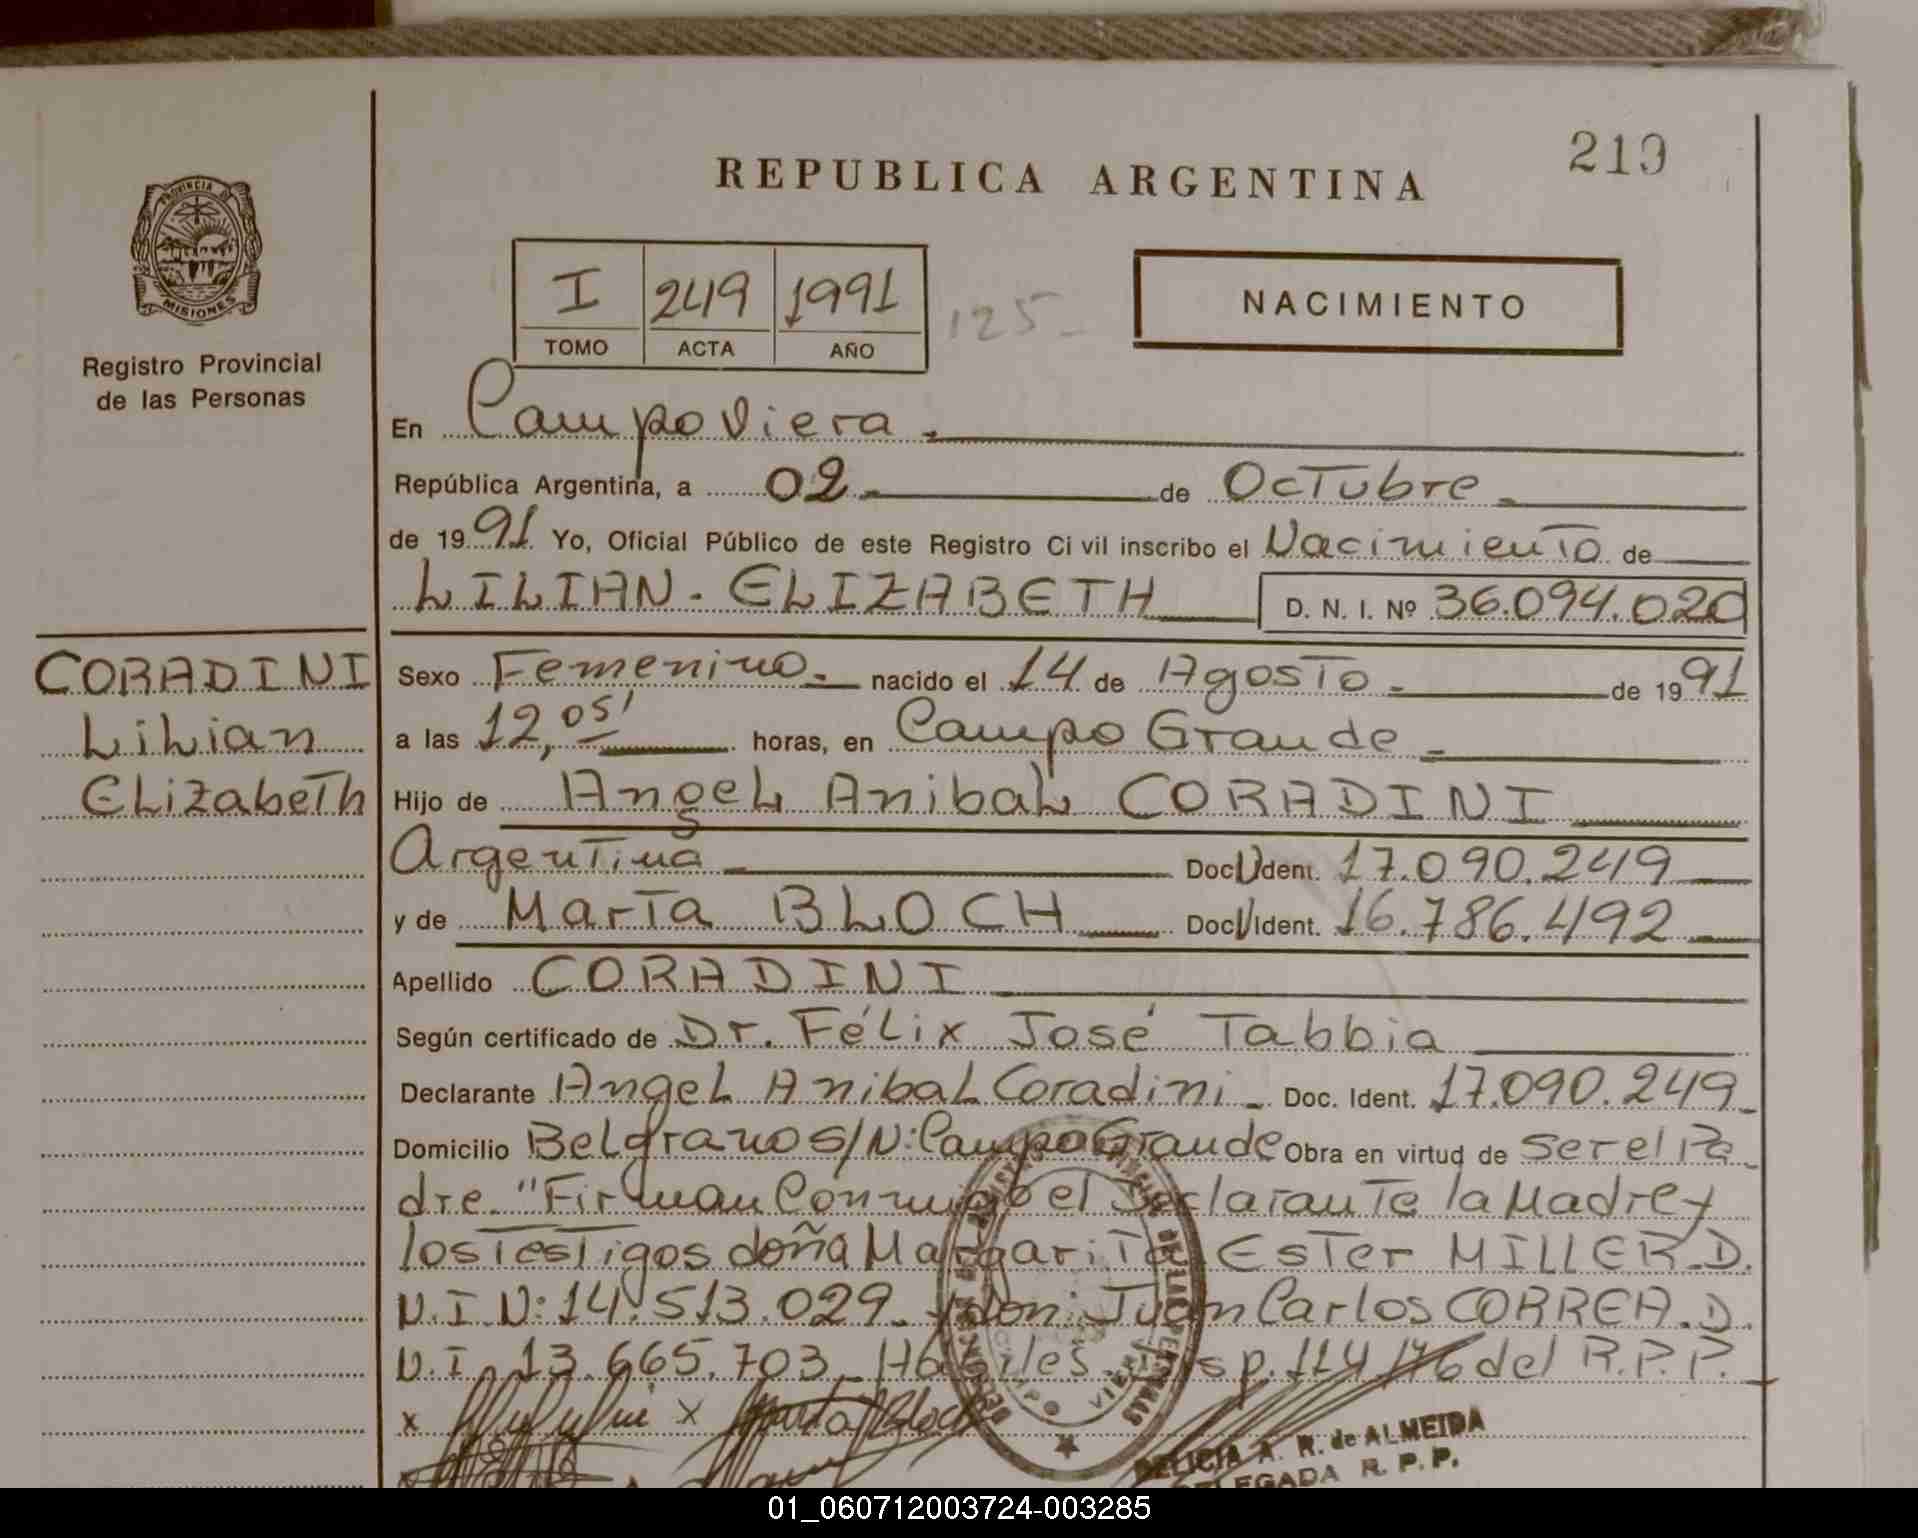 219
REPUBLICA ARGENTINA
PROVINCIA DE
MISIONES
Registro Provincial
de las Personas
I 249 1991
TOMO ACTA AÑO
125-
NACIMIENTO
En Campo Viera.
República Argentina, a 02 de Octubre
de 1991. Yo, Oficial Público de este Registro Ci vil inscribo el Nacimiento de
LILIAN. ELIZABETH D. N. I. Nº 36.094.020
CORADINI
Lilian
Elizabeth
Sexo Femenino. nacido el 14 de Agosto de 1991
a las 12,05' horas, en Campo Grande
Hijo de Angel Anibal CORADINI
Argentina Doc. Ident. 17.090.249
y de Marta BLOCH Doc. Ident. 16.786.492
Apellido CORADINI
Según certificado de Dr. Félix José Tabbia
Declarante Angel Anibal Coradini Doc. Ident. 17.090.249
Domicilio Belgrano S/N: Campo Grande Obra en virtud de ser el Pa
dre. "Firman Conmigo el Declarante la Madre y
los Testigos doña Margarita Ester MILLER. D.
N. I. N: 14.513.029. y don Juan Carlos CORREA. D.
N. I. 13.665.703 Disp. 114/76 del R. P. P.
x x Marta Bloch
CAMPO VIERA
DELICIA A. R. de ALMEIDA
DELEGADA R. P. P.
01_060712003724-003285